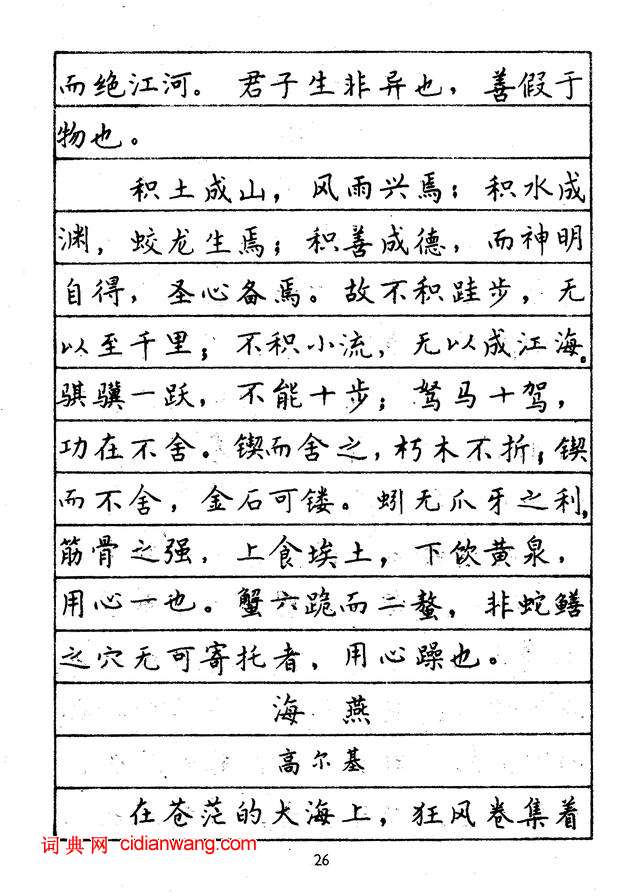 而绝江河。君子生非异也，善假于
物也。
积土成山，风雨兴焉；积水成
渊，蛟龙生焉；积善成德，而神明
自得，圣心备焉。故不积跬步，无
以至千里；不积小流，无以成江海。
骐骥一跃，不能十步；驽马十驾，
功在不舍。锲而舍之，朽木不折；锲
而不舍，金石可镂。蚓无爪牙之利，
筋骨之强，上食埃土，下饮黄泉，
用心一也。蟹六跪而二螯，非蛇鳝
之穴无可寄托者，用心躁也。
海燕
高尔基
在苍茫的大海上，狂风卷集着
词典网 cidianwang.com
26